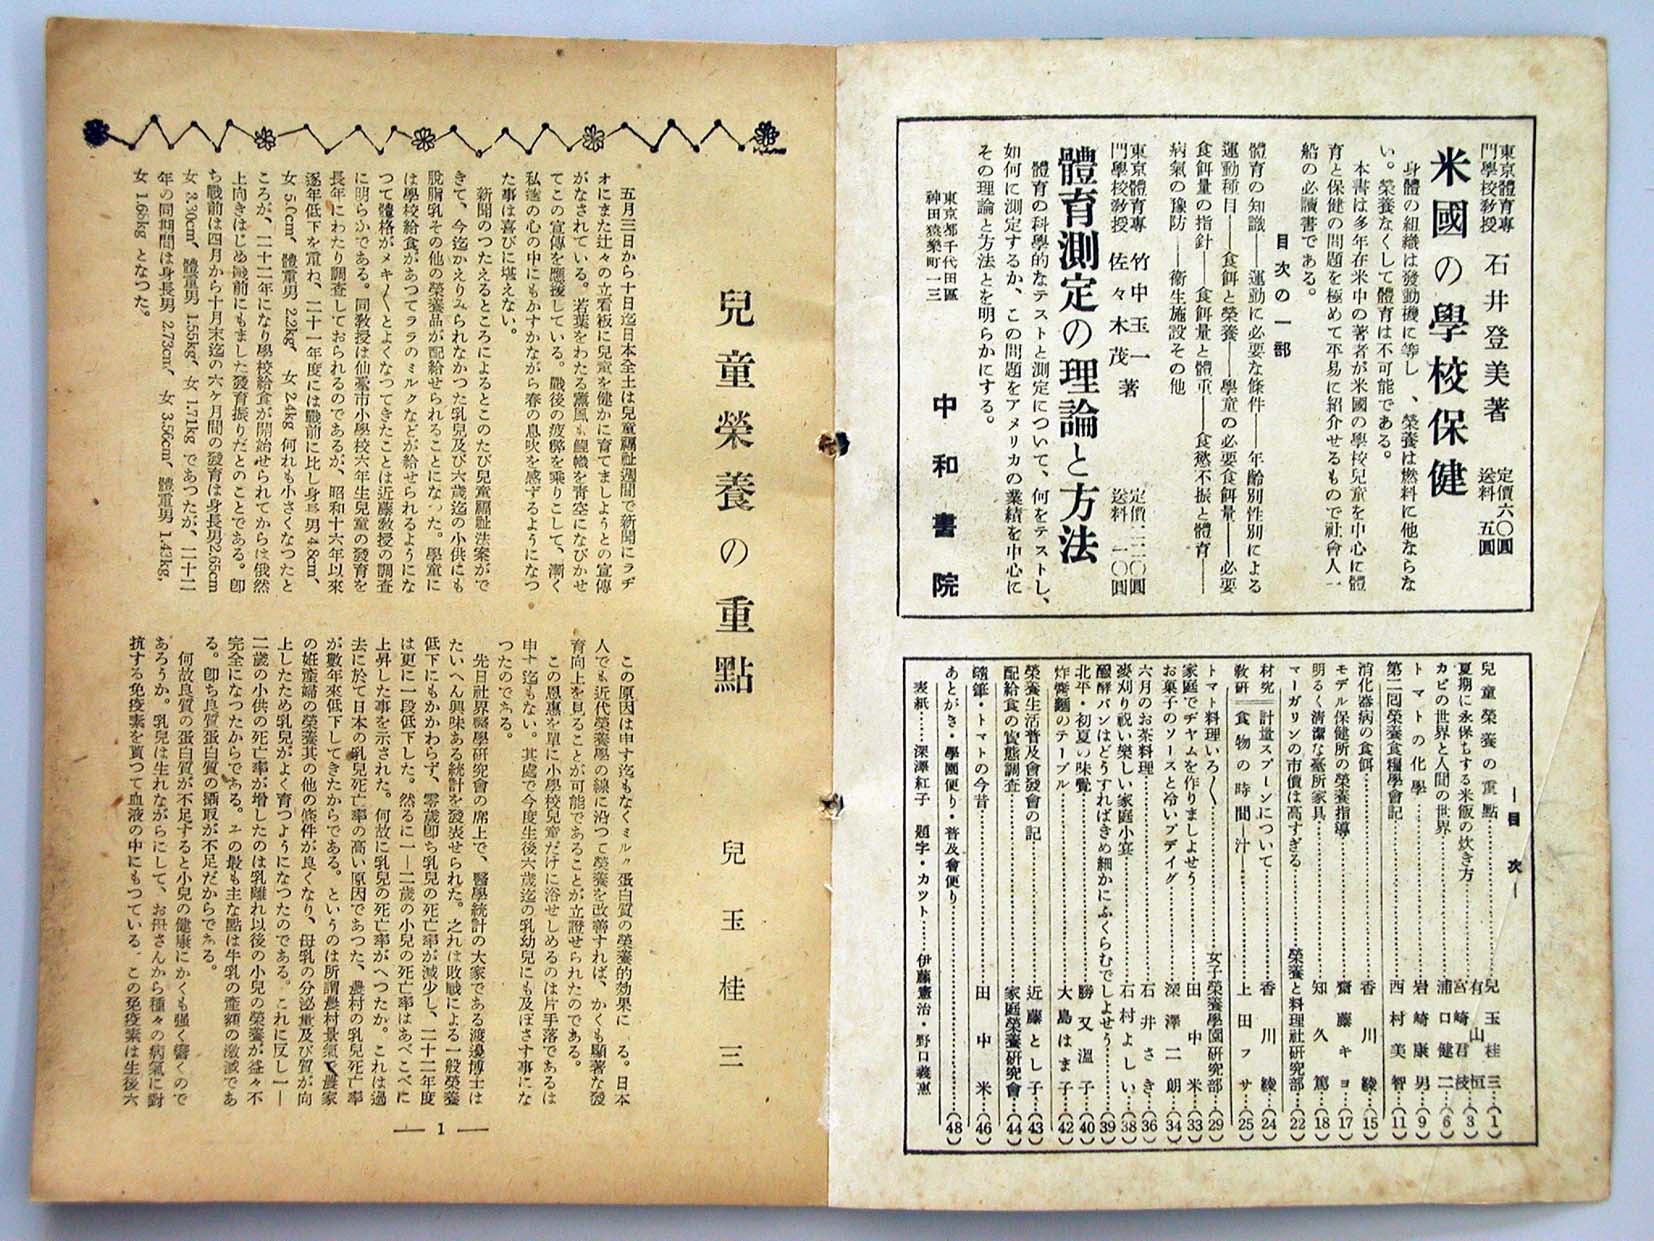 東京體育專門學校敎授 石井登美著 定價六〇圓 送料 五圓
米國の學校保健
身體の組織は發動機に等し、榮養は燃料に他ならな
い。榮養なくして體育は不可能である。
本書は多年在米中の著者が米國の學校兒童を中心に體
育と保健の問題を極めて平易に紹介せるもので社會人一
般の必讀書である。
目次の一部
體育の知識――運動に必要な條件――年齡別性別による
運動種目――食餌と榮養――學童の必要食餌量――必要
食餌量の指針――食餌量と體重――食慾不振と體育――
病氣の豫防――衞生施設その他
東京體育專門學校敎授 竹中玉一 佐々木茂 著 定價一二〇圓 送料 一〇圓
體育測定の理論と方法
體育の科學的なテストと測定について、何をテストし、
如何に測定するか、この問題をアメリカの業績を中心に
その理論と方法とを明らかにする。
東京都千代田區
神田猿樂町一ノ三
中和書院
―目次―
兒童榮養の重點……兒玉桂三…(1)
夏期に永保ちする米飯の炊き方……有山恒 宮崎君枝…(3)
カビの世界と人間の世界……浦口健二…(6)
トマトの化學……岩崎康男…(9)
第二回榮養食糧學會記……西村美智…(11)
消化器病の食餌……香川綾…(15)
モデル保健所の榮養指導……齋藤キヨ…(17)
明るく淸潔な臺所家具……知久篤…(18)
マーガリンの市價は高すぎる……榮養と料理社硏究部…(22)
材究=計量スプーンについて……香川綾…(24)
敎硏=食物の時間―汁―……上田フサ…(25)
トマト料理いろ〳〵……女子榮養學園硏究部…(29)
家庭でヂヤムを作りましよせう……田中米…(33)
お菓子のソースと冷いプデイグ……深澤二朗…(34)
六月のお茶料理……石井さき…(36)
麥刈り祝い樂しい家庭小宴……石村よしい…(38)
醱酵パンはどうすればきめ細かにふくらむでしよせう……(39)
北平・初夏の味覺……勝又溫子…(40)
炸醬麵のテーブル……大島はま子…(42)
榮養生活普及會發會の記……近藤とし子…(43)
配給食の實態調査……家庭榮養硏究會…(44)
隨筆・トマトの今昔……田中米…(46)
あとがき・學園便り・普及會便り……(48)
表紙……深澤紅子 題字・カツト……伊藤憲治・野口義惠
兒童榮養の重點
兒玉桂三
五月三日から十日迄日本全土は兒童福祉週間で新聞にラヂ
オにまた辻々の立看板に兒童を健かに育てましようとの宣傳
がなされている。若葉をわたる薰風も鯉幟を靑空になびかせ
てこの宣傳を應援している。戰後の疲弊を乘りこして、漸く
私達の心の中にもかすかながら春の息吹を感ずるようになつ
た事は喜びに堪えない。
新聞のつたえるところによるとこのたび兒童福祉法案がで
きて、今迄かえりみられなかつた乳兒及び六歲迄の小供にも
脫脂乳その他の榮養品が配給せられることになつた。學童に
は學校給食があつてララのミルクなどが給せられるようにな
つて體格がメキ〳〵とよくなつてきたことは近藤敎授の調査
に明らかである。同敎授は仙臺市小學校六年生兒童の發育を
長年にわたり調査しておられるのであるが、昭和十六年以來
逐年低下を重ね、二十一年度には戰前に比し身長男 4.8cm、
女 5.0cm、體重男 2.2kg、女 2.4kg 何れも小さくなつたと
ころが、二十二年になり學校給食が開始せられてからは俄然
上向きはじめ戰前にもました發育振りだとのことである。卽
ち戰前は四月から十月末迄の六ケ月間の發育は身長男2.65cm
女 3.30cm、體重男 1.55kg、女 1.71kg であつたが、二十二
年の同期間は身長男 2.73cm、女 3.56cm、體重男 1.43kg、
女 1.66kg となつた。
この原因は申す迄もなくミルク蛋白質の榮養的効果に る。日本
人でも近代榮養學の線に沿つて榮養を改善すれば、かくも顯著な發
育向上を見ることが可能であることが立證せられたのである。
この恩惠を單に小學校兒童だけに浴せしめるのは片手落であるは
申す迄もない。其處で今度生後六歲迄の乳幼兒にも及ぼさす事にな
つたのである。
先日社界醫學硏究會の席上で、醫學統計の大家である渡邊博士は
たいへん興味ある統計を發表せられた。之れは敗戰による一般榮養
低下にもかかわらず、零歲卽ち乳兒の死亡率が減少し、二十二年度
は更に一段低下した。然るに一―二歲の小兒の死亡率はあべこべに
上昇した事を示された。何故に乳兒の死亡率がへつたか。これは過
去に於て日本の乳兒死亡率の高い原因であつた、農村の乳兒死亡率
が數年來低下してきたからである。というのは所謂農村景氣で農家
の姙產婦の榮養其の他の條件が良くなり、母乳の分泌量及び質が向
上したため乳兒がよく育つようになつたのである。これに反し一―
二歲の小供の死亡率が增したのは乳離れ以後の小兒の榮養が益々不
完全になつたからである。その最も主な點は牛乳の產額の激減であ
る。卽ち良質蛋白質の攝取が不足だからである。
何故良質の蛋白質が不足すると小兒の健康にかくも强く響くので
あろうか。乳兒は生れながらにして、お母さんから種々の病氣に對
抗する免疫素を貰つて血液の中にもつている。この免疫素は生後六
― 1 ―